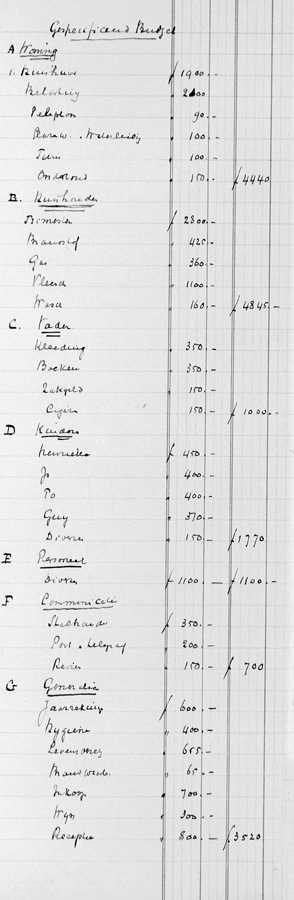 Gespecificeerd Budget
A Woning
1. Huishuur ƒ 1900.-
Belasting " 2000
Telephon " 90.-
" 100.-
Tuin " 100.-
Onderhoud " 150.- ƒ 4440
B. Huishouden
ƒ 2800.-
Brandstof " 425.-
Gas " 360.-
Vleesch " 1100.-
Wasch " 160.- ƒ 4845.-
C. Vader
Kleeding " 350.-
Boeken " 350.-
Zakgeld " 150.-
Cigaren " 150.- ƒ 1000.-
D Kinderen
Henriette ƒ 450.-
Jo " 400.-
To " 400.-
Guy " 370.-
Diversen " 150.- ƒ 1770
E Personeel
Diversen ƒ 1100.- ƒ 1100.-
F Communicatie
ƒ 350.-
Post & telegraaf " 200.-
Reizen " 150.- ƒ 700
G
Jaarrekening ƒ 600.-
Hygiene " 400.-
Levensverz " 655.-
Brandwaarb. " 65.-
Inkoop " 700.-
Wijn " 300.-
Receptie " 800.- ƒ 3520